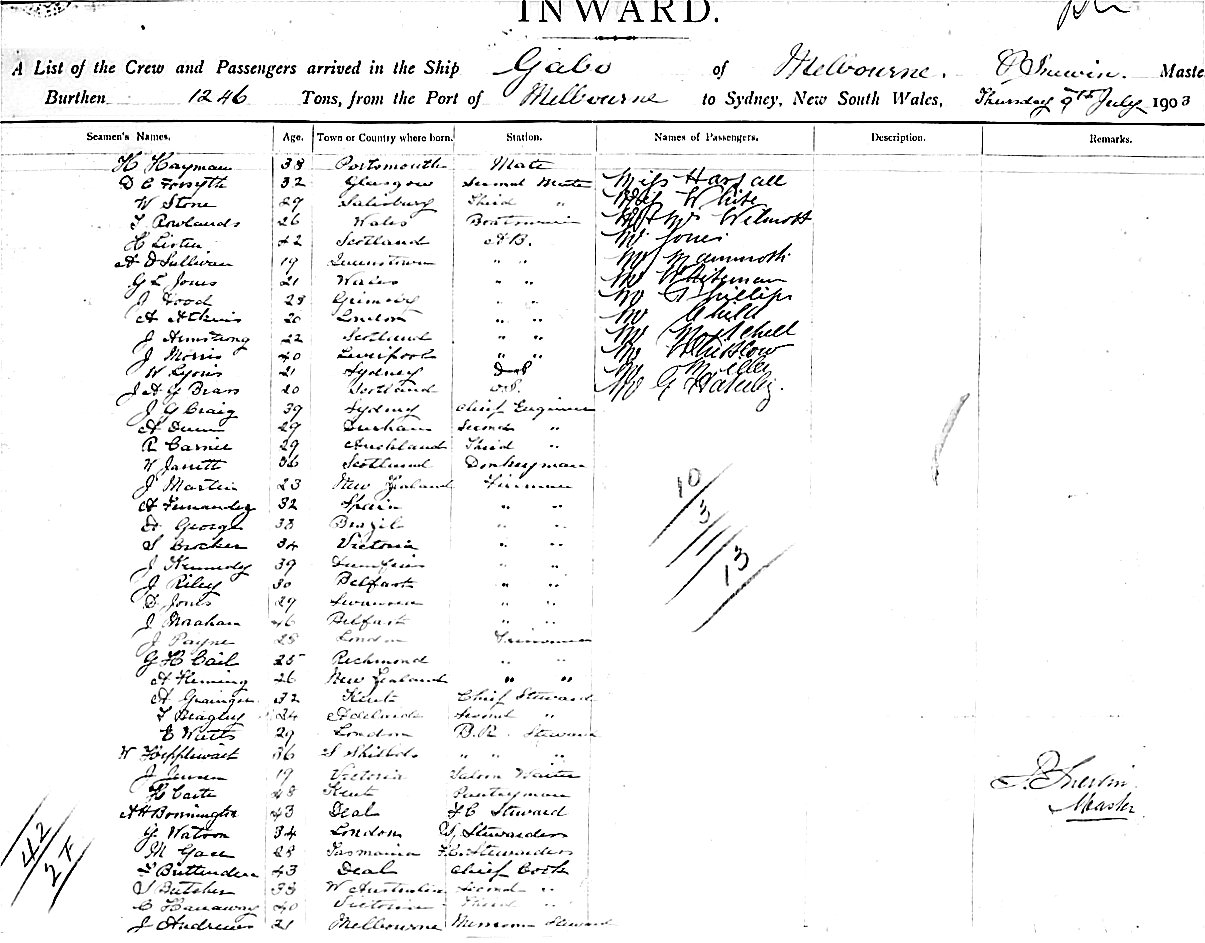 INWARD.
A List of the Crew and Passengers arrived in the Ship Gabo of Melbourne. Master
Burthen 1246 Tons, from the Port of Melbourne to Sydney, New South Wales, Thursday 9th July 1903
Seamen's Names. Age. Town or Country where born. Station. Names of Passengers. Description. Remarks.
H Hayman 38 Portsmouth Mate
D C Forsyth 32 Glasgow Second Mate Miss Hassall
W Stone 29 Salisbury Third " Miss White
T Rowlands 26 Wales Boatswain Mr & Mrs Wilmott
H Lister 42 Scotland A B. Mr Jones
A O Sullivan 19 Queenstown " " Mr Mammoth
G L Jones 21 Wales " " Mr Whiteman
J Food 28 Grimsby " " Mr Phillips
A Atkins 20 London " " Mr Child
J Armstrong 22 Scotland " " Mr Mitchell
J Morris 40 Liverpool " " Mr
W Lyons 21 Sydney Mr Miller
J A G Brass 20 Scotland O.S. Mr G
J G Craig 39 Sydney Chief Engineer
A Dunn 29 Durham Second "
R Carnie 29 Auckland Third "
W Jarrett 36 Scotland Donkeyman
J Martin 23 New Zealand Fireman
A Fernandez 32 Spain " "
A George 38 Brazil " "
S Brocker 34 Victoria " "
J Kennedy 39 Dumfries " "
J Riley 30 Belfast " "
D Jones 29 Swansea " "
J Moraham 46 Belfast " "
J Payne 28 London Trimmer
G H Cail 25 Richmond " "
A Fleming 26 New Zealand " "
A Grainger 32 Kent Chief Steward
T Beagley 24 Adelaide Second "
E Watts 29 London B.R. Steward
W Hepplewait 36 S Shields " " "
J Jensen 19 Victoria Saloon Waiter
H Carte 48 Kent Pantryman
A H Bonnington 43 Deal F C Steward
G. Watson 34 London Stewardess
M Gase 28 Tasmania F.C. Stewardess
T Brittenden 43 Deal Chief Cook
S Butcher 38 W Australia Second "
C Hannaway 40 Victoria Third "
J Andrews 21 Melbourne Messroom Steward
10
3
11
13
42
Master